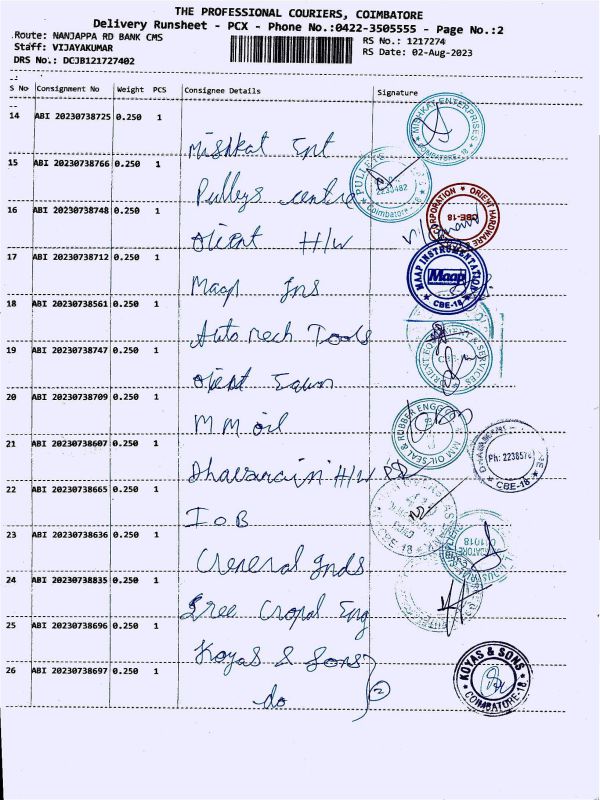 THE PROFESSIONAL COURIERS, COIMBATORE
Delivery Runsheet - PCX - Phone No.:0422-3505555 - Page No.:2
Route: NANJAPPA RD BANK CMS
RS No.: 1217274
Staff: VIJAYAKUMAR
RS Date: 02-Aug-2023
DRS No.: DCJB121727402
S No Consignment No Weight PCS Consignee Details Signature
14 ABI 20230738725 0.250 1
Mishkat Ent
MISHKAT ENTERPRISES
COIMBATORE-18
15 ABI 20230738766 0.250 1
Pulleys centre
Coimbatore
16 ABI 20230738748 0.250 1
Orient H/W
ORIENT HARDWARE CORPORATION
CBE-18
17 ABI 20230738712 0.250 1
Maap Ins
MAAP INSTRUMENTATION
Maap
CBE-18
18 ABI 20230738561 0.250 1
Auto Mech Tools
19 ABI 20230738747 0.250 1
Orient
& SERVICES
CBE-
20 ABI 20230738709 0.250 1
MM oil
MM OIL SEAL & RUBBER ENGG
21 ABI 20230738607 0.250 1
H/W
Ph: 223857
CBE-18
22 ABI 20230738665 0.250 1
IOB
CBE 18
23 ABI 20230738636 0.250 1
General Inds
24 ABI 20230738835 0.250 1
Sree Gopal Eng
25 ABI 20230738696 0.250 1
Koyas & Sons
KOYAS & SONS
COIMBATORE-18
26 ABI 20230738697 0.250 1
do
2